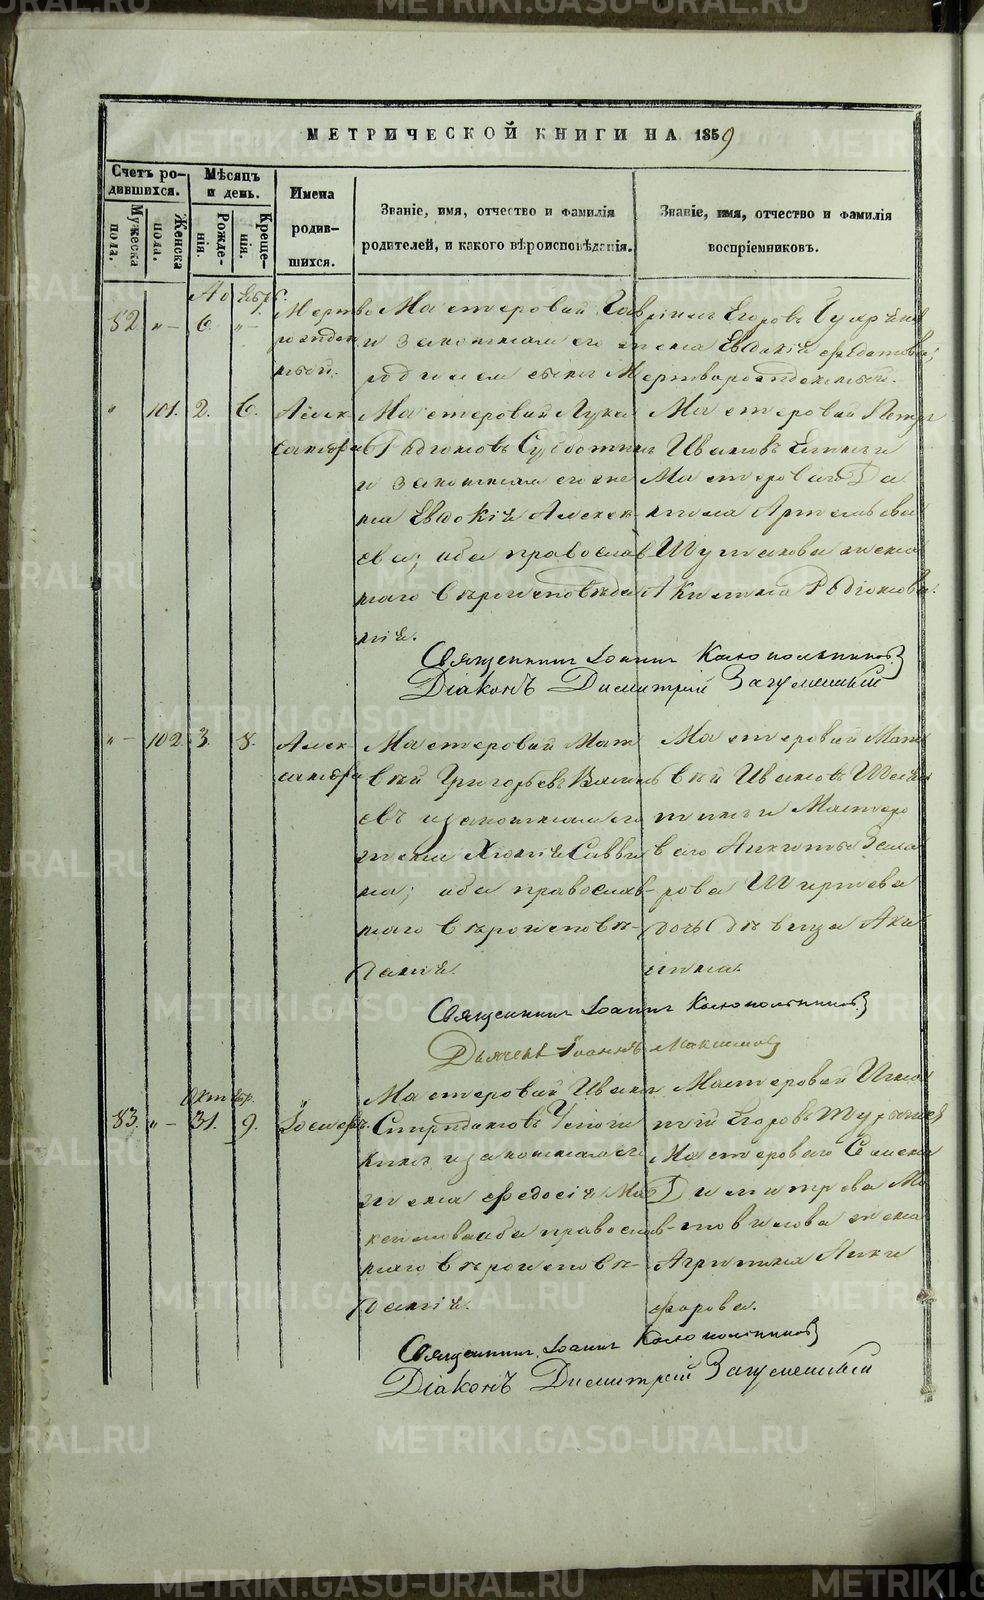 МЕТРИЧЕСКОЙ КНИГИ НА 1859
Счетъ родившихся.
Мужеска пола.
Женска пола.
Мѣсяцъ и день.
Рожденія.
Крещенія.
Имена родившихся.
Званіе, имя, отчество и фамилія родителей, и какого вѣроисповѣданія.
Званіе, имя, отчество и фамилія воспріемниковъ.
Ноябрь.
82 " — 6. " —
Мертво
рожден
ный.
Мастеровой Гавріилъ Егоровъ
и законная его жена Евдокія Федотова;
родился сынъ Мертворожденный.
" 101. 2. 6.
Алек
сандра
Мастеровой Лука
Родіоновъ Субботинъ
и законная его же
на Евдокія Алексѣ
ева; оба православ
наго вѣроисповѣда
нія.
Мастеровой Петръ
Ивановъ
Мастероваго Да
нила Артемьева
Шумакова жена
Акилина Родіонова.
Священникъ Іоаннъ Колокольниковъ
Діаконъ Димитрій Загуменный
" — 102. 3. 8.
Алек
сандра
Мастеровой Мат
вѣй Григорьевъ Василь
евъ и законная его
жена Хіонія Савви
на; оба православ-
наго вѣроисповѣ-
данія.
Мастеровой Мат
вѣй Ивановъ
и Мастеро
ваго Никиты
дочь дѣвица Аку
лина.
Священникъ Іоаннъ Колокольниковъ
Дьячекъ Іоаннъ Максимовъ
Октябр.
83. " — 31. 9.
Іосифъ.
Мастеровой Иванъ
Спиридоновъ
и законная его
жена Федосія Ма
ксимова оба православ-
наго вѣроисповѣ-
данія.
Мастеровой Игна
тій Егоровъ
Мастероваго Семена
Димитрева Мо
товилова жена
Агрипина Ники
форова.
Священникъ Іоаннъ Колокольниковъ
Діаконъ Димитрій Загуменный
METRIKI.GASO-URAL.RU